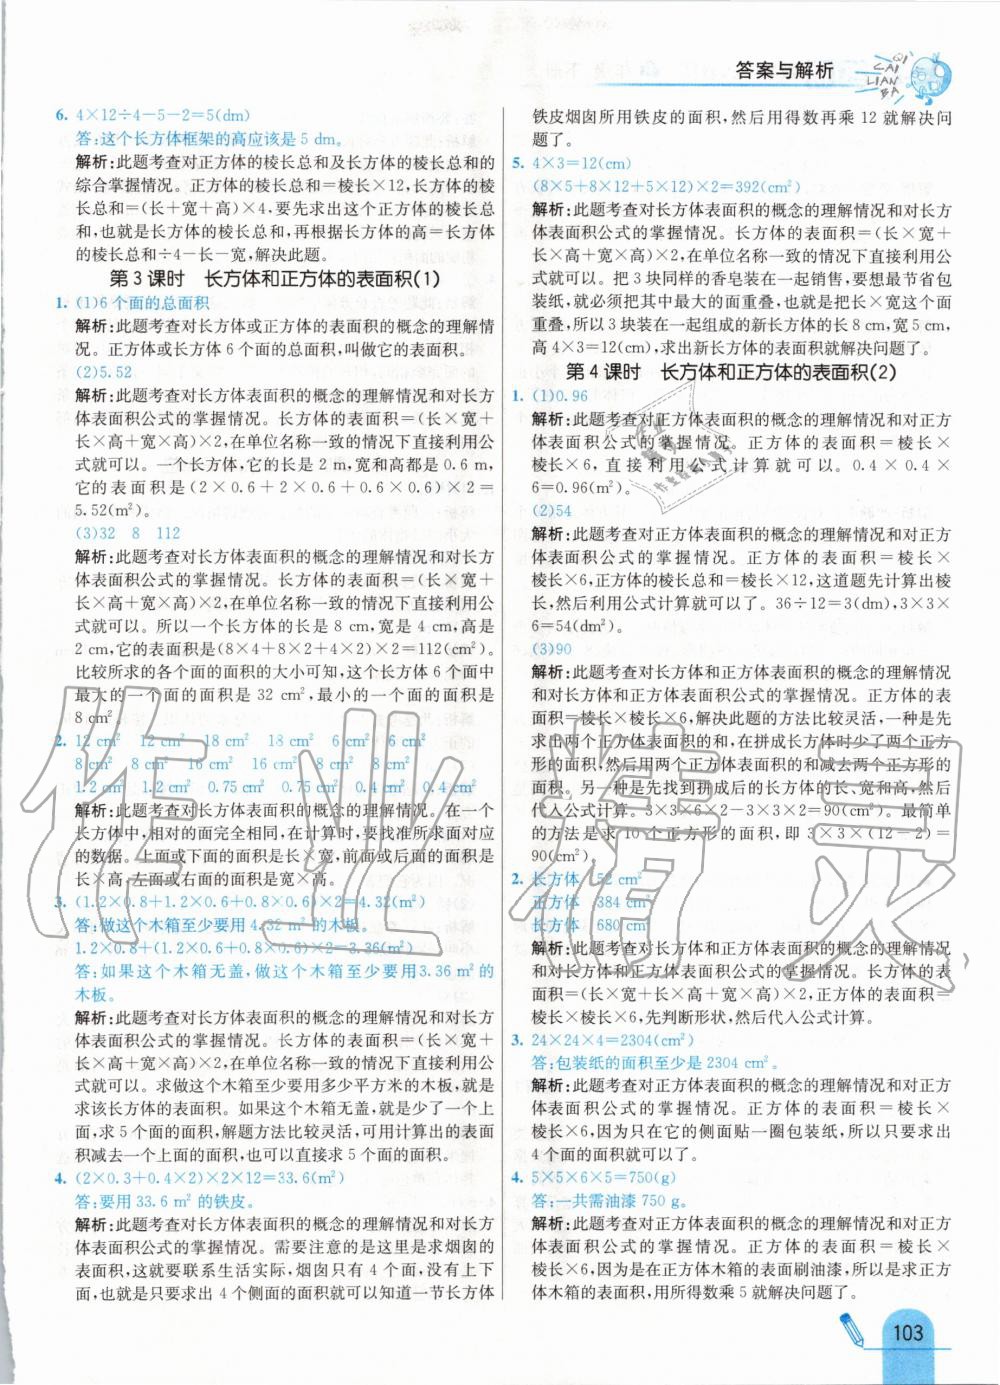 答案与解析
QI
CAI
LIAN
BA
6. 4×12÷4-5-2=5(dm)
答:这个长方体框架的高应该是 5 dm。
解析:此题考查对正方体的棱长总和及长方体的棱长总和的
综合掌握情况。正方体的棱长总和=棱长×12,长方体的棱
长总和=(长+宽+高)×4,要先求出这个正方体的棱长总
和,也就是长方体的棱长总和,再根据长方体的高=长方体
的棱长总和÷4-长-宽,解决此题。
第 3 课时 长方体和正方体的表面积(1)
1. (1)6 个面的总面积
解析:此题考查对长方体或正方体的表面积的概念的理解情
况。正方体或长方体 6 个面的总面积,叫做它的表面积。
(2)5.52
解析:此题考查对长方体表面积的概念的理解情况和对长方
体表面积公式的掌握情况。长方体的表面积=(长×宽+
长×高+宽×高)×2,在单位名称一致的情况下直接利用公
式就可以了。一个长方体,它的长是 2 m,宽和高都是 0.6 m,
它的表面积是(2×0.6+2×0.6+0.6×0.6)×2=
5.52(m²)。
(3)32 8 112
解析:此题考查对长方体表面积的概念的理解情况和对长方
体表面积公式的掌握情况。长方体的表面积=(长×宽+
长×高+宽×高)×2,在单位名称一致的情况下直接利用公
式就可以。所以一个长方体的长是 8 cm,宽是 4 cm,高是
2 cm,它的表面积是(8×4+8×2+4×2)×2=112(cm²)。
比较所求的各个面的面积的大小可知,这个长方体 6 个面中
最大的一个面的面积是 32 cm²,最小的一个面的面积是
8 cm²。
2. 12 cm² 12 cm² 18 cm² 18 cm² 6 cm² 6 cm²
8 cm² 8 cm² 16 cm² 16 cm² 8 cm² 8 cm²
1.2 cm² 1.2 cm² 0.75 cm² 0.75 cm² 0.4 cm² 0.4 cm²
解析:此题考查对长方体表面积的概念的理解情况。在一个
长方体中,相对的面完全相同,在计算时,要找准所求面对应
的数据。上面或下面的面积是长×宽,前面或后面的面积是
长×高,左面或右面的面积是宽×高。
3. (1.2×0.8+1.2×0.6+0.8×0.6)×2=4.32(m²)
答:做这个木箱至少要用 4.32 m² 的木板。
1.2×0.8+(1.2×0.6+0.8×0.6)×2=3.36(m²)
答:如果这个木箱无盖,做这个木箱至少要用3.36 m² 的
木板。
解析:此题考查对长方体表面积的概念的理解情况和对长方
体表面积公式的掌握情况。长方体的表面积=(长×宽+
长×高+宽×高)×2,在单位名称一致的情况下直接利用公
式就可以。求做这个木箱至少要用多少平方米的木板,就是
求该长方体的表面积。如果这个木箱无盖,就是少了一个上
面,求 5 个面的面积,解题方法比较灵活,可用计算出的表面
积减去一个上面的面积,也可以直接求 5 个面的面积。
4. (2×0.3+0.4×2)×2×12=33.6(m²)
答:要用 33.6 m² 的铁皮。
解析:此题考查对长方体表面积的概念的理解情况和对长方
体表面积公式的掌握情况。需要注意的是这里是求烟囱的
表面积,这就要联系生活实际,烟囱只有 4 个面,没有上下
面,也就是只要求出 4 个侧面的面积就可以知道一节长方体
铁皮烟囱所用铁皮的面积,然后用得数再乘 12 就解决问
题了。
5. 4×3=12(cm)
(8×5+8×12+5×12)×2=392(cm²)
解析:此题考查对长方体表面积的概念的理解情况和对长方
体表面积公式的掌握情况。长方体的表面积=(长×宽+
长×高+宽×高)×2,在单位名称一致的情况下直接利用公
式就可以。把 3 块同样的香皂装在一起销售,要想最节省包
装纸,就必须把其中最大的面重叠,也就是把长×宽这个面
重叠,所以 3 块装在一起组成的新长方体的长 8 cm,宽 5 cm,
高 4×3=12(cm),求出新长方体的表面积就解决问题了。
第 4 课时 长方体和正方体的表面积(2)
1. (1)0.96
解析:此题考查对正方体表面积的概念的理解情况和对正方
体表面积公式的掌握情况。正方体的表面积=棱长×棱
长×6,直接利用公式计算就可以了。0.4×0.4×
6=0.96(m²)。
(2)54
解析:此题考查对正方体表面积的概念的理解情况和对正方
体表面积公式的掌握情况。正方体的表面积=棱长×棱
长×6,正方体的棱长总和=棱长×12,这道题先计算出棱
长,然后利用公式计算就可以了。36÷12=3(dm),3×3×
6=54(dm²)。
(3)90
解析:此题考查对长方体和正方体表面积的概念的理解情况
和对长方体和正方体表面积公式的掌握情况。正方体的表
面积=棱长×棱长×6,解决此题的方法比较灵活,一种是先
求出两个正方体表面积的和,在拼成长方体时少了两个正方
形的面积,然后用两个正方体表面积的和减去两个正方形的
面积。另一种是先找到拼成后的长方体的长、宽和高,然后
代入公式计算。3×3×6×2-3×3×2=90(cm²)。最简单
的方法是求 10 个正方形的面积,即 3×3×(12-2)=
90(cm²)。
2. 长方体 52 cm²
正方体 384 cm²
长方体 680 cm²
解析:此题考查对长方体和正方体表面积的概念的理解情况
和对长方体和正方体表面积公式的掌握情况。长方体的表
面积=(长×宽+长×高+宽×高)×2,正方体的表面积=
棱长×棱长×6,先判断形状,然后代入公式计算。
3. 24×24×4=2304(cm²)
答:包装纸的面积至少是 2304 cm²。
解析:此题考查对正方体表面积的概念的理解情况和对正方
体表面积公式的掌握情况。正方体的表面积=棱长×棱
长×6,因为只在它的侧面贴一圈包装纸,所以只要求出
4 个面的面积就可以了。
4. 5×5×6×5=750(g)
答:一共需油漆 750 g。
解析:此题考查对正方体表面积的概念的理解情况和对正方
体表面积公式的掌握情况。正方体的表面积=棱长×棱
长×6,因为是在正方体木箱的表面刷油漆,所以是求正方
体木箱的表面积,用所得数乘 5 就解决问题了。
作业精灵
103